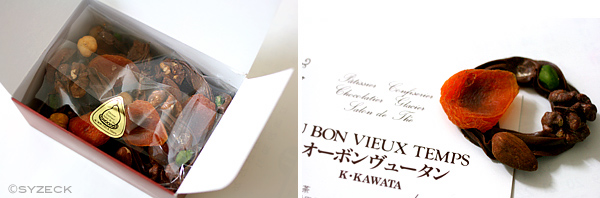 ©SYZECK
Pâtissier Confiserie
Chocolatier Glacier
Salon de Thé
U BON VIEUX TEMPS
オーボンヴュータン
K・KAWATA
茶